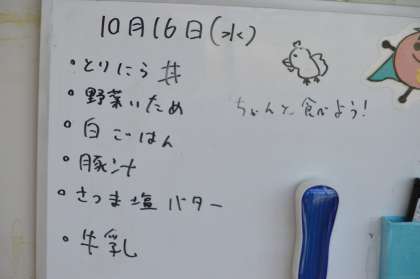 10月16日(水)
・とりにら丼
・野菜いため
・白ごはん
・豚汁
・さつま塩バター
・牛乳
ちゃんと食べよう!